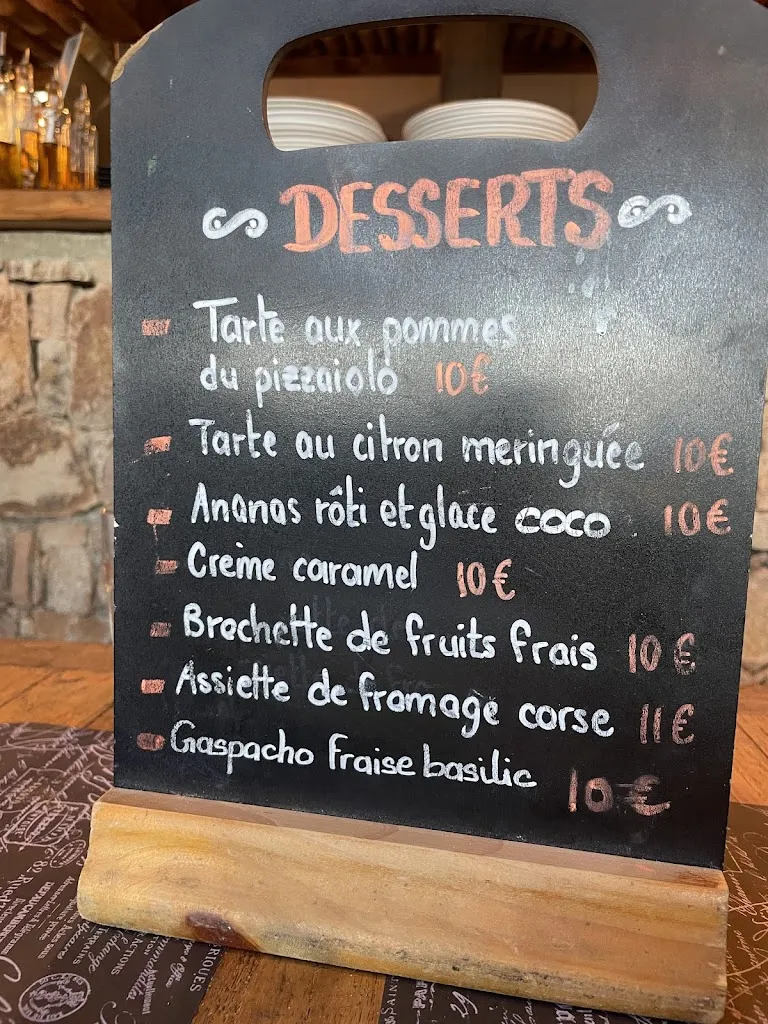 DESSERTS
Tarte aux pommes
du pizzaiolo 10€
Tarte au citron meringuée 10€
Ananas rôti et glace coco 10€
Crème caramel 10€
Brochette de fruits frais 10€
Assiette de fromage corse 11€
Gaspacho fraise basilic 10€